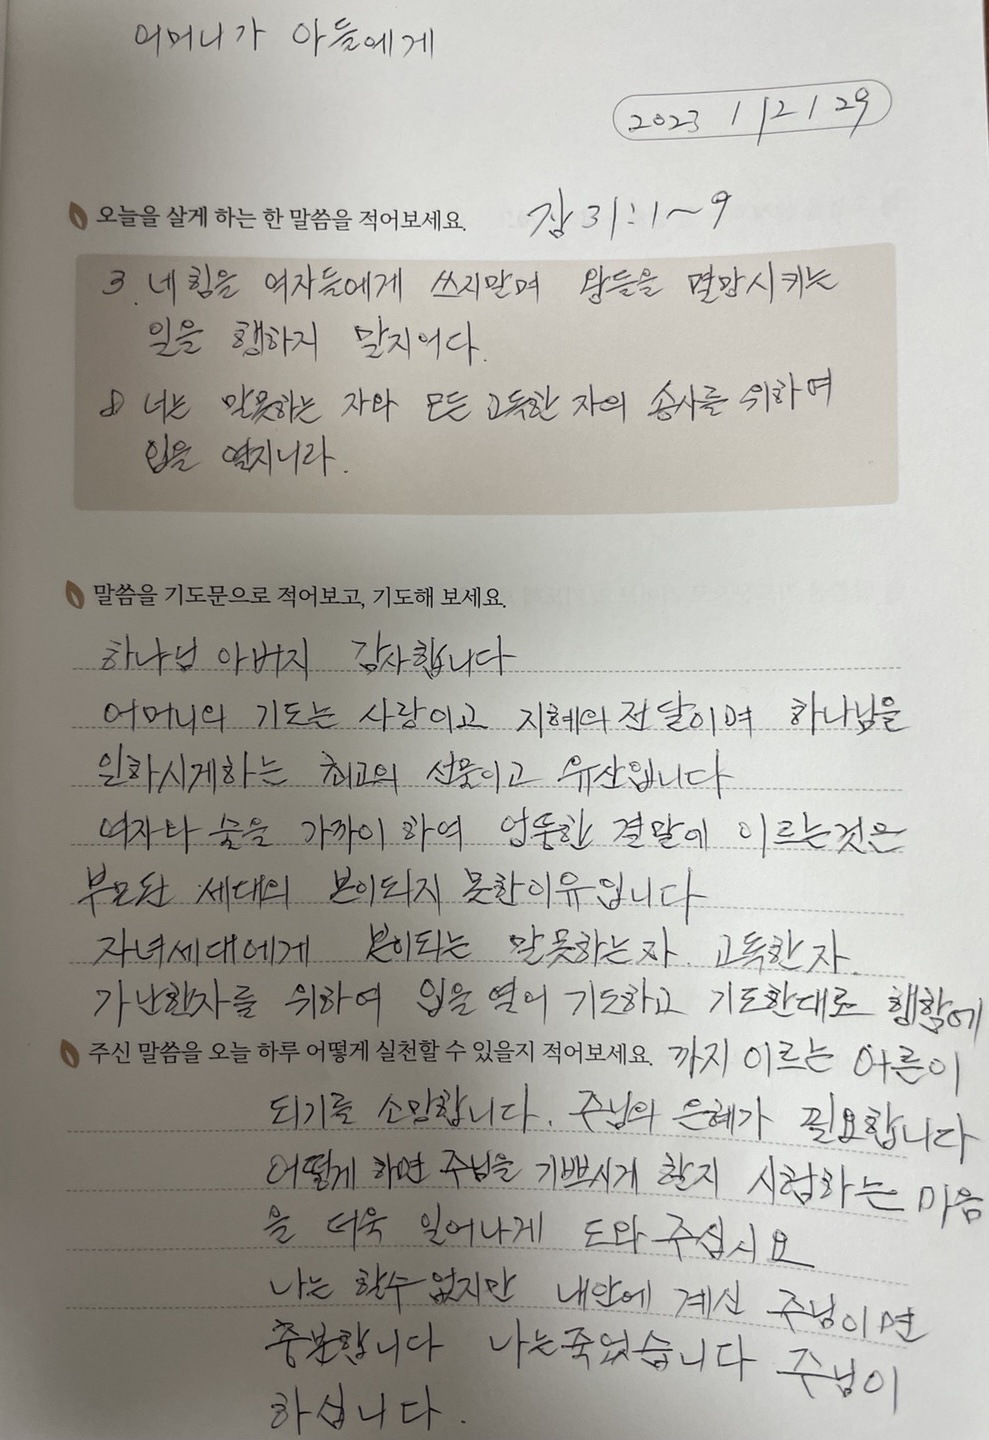 어머니가 아들에게
2023 / 12 / 29
오늘을 살게 하는 한 말씀을 적어보세요. 잠 31:1~9
3. 네 힘을 여자들에게 쓰지말며 왕들을 멸망시키는
일을 행하지 말지어다.
8 너는 말못하는 자와 모든 고독한 자의 송사를 위하여
입을 열지니라.
말씀을 기도문으로 적어보고, 기도해 보세요.
하나님 아버지 감사합니다
어머니의 기도는 사랑이고 지혜의 전달이며 하나님을
인하시게하는 최고의 선물이고 유산입니다
여자나 술을 가까이 하여 엉뚱한 결말에 이르는것은
부모된 세대의 본이되지 못한이유입니다
자녀세대에게 본이되는 말못하는자. 고독한자.
가난한자를 위하여 입을 열어 기도하고 기도한대로 행함에
주신 말씀을 오늘 하루 어떻게 실천할 수 있을지 적어보세요. 까지 이르는 어른이
되기를 소망합니다. 주님의 은혜가 필요합니다
어떻게 하면 주님을 기쁘시게 할지 시험하는 마음
을 더욱 일어나게 도와 주십시요
나는 할수 없지만 내안에 계신 주님이면
충분합니다 나는죽었습니다 주님이
하십니다.